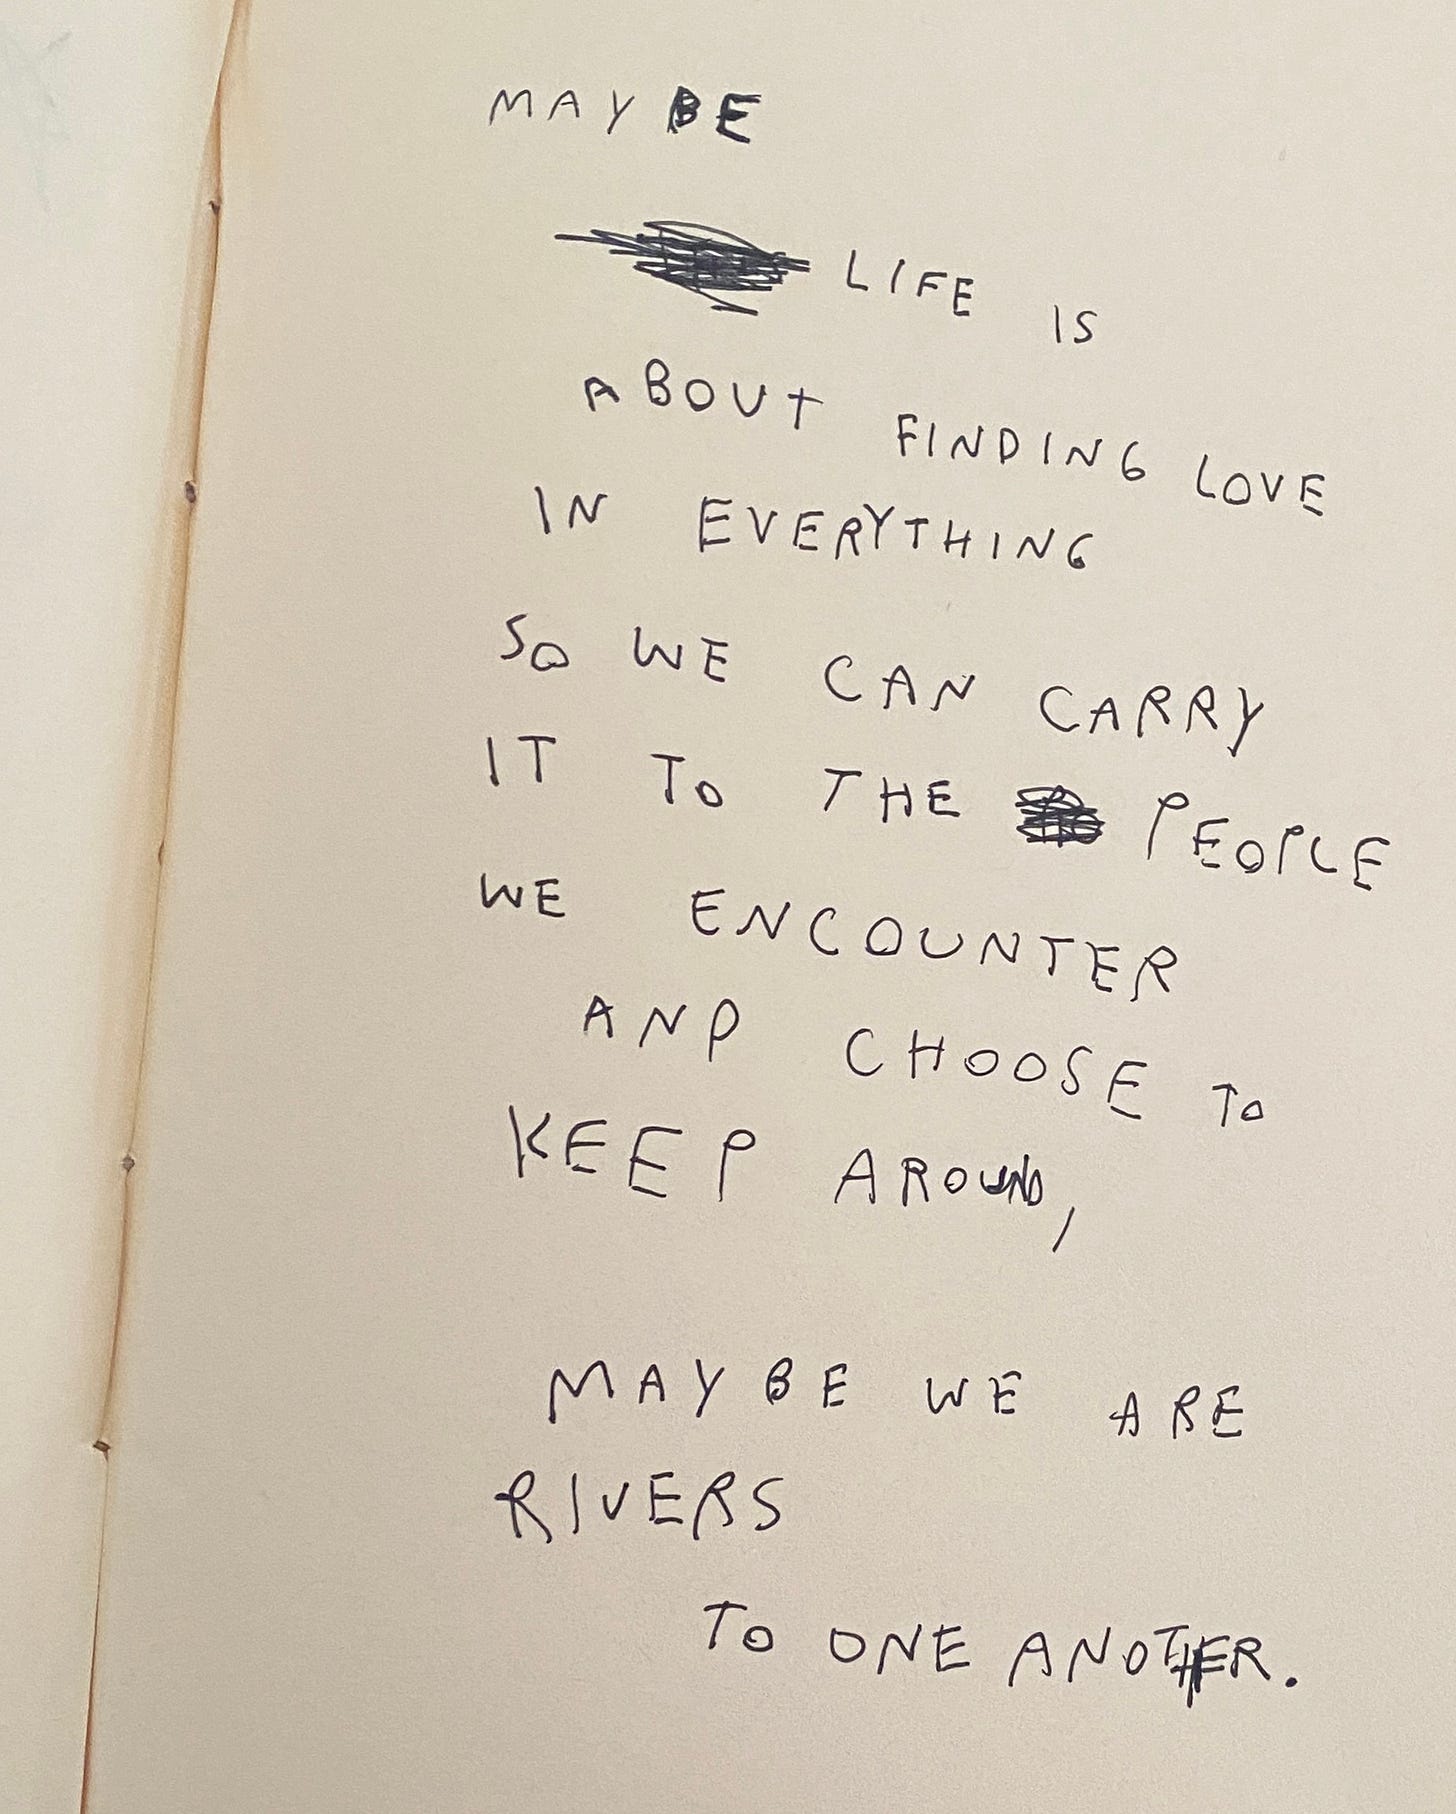 MAYBE
LIFE IS
ABOUT FINDING LOVE
IN EVERYTHING
SO WE CAN CARRY
IT TO THE PEOPLE
WE ENCOUNTER
AND CHOOSE TO
KEEP AROUND,
MAYBE WE ARE
RIVERS
TO ONE ANOTHER.